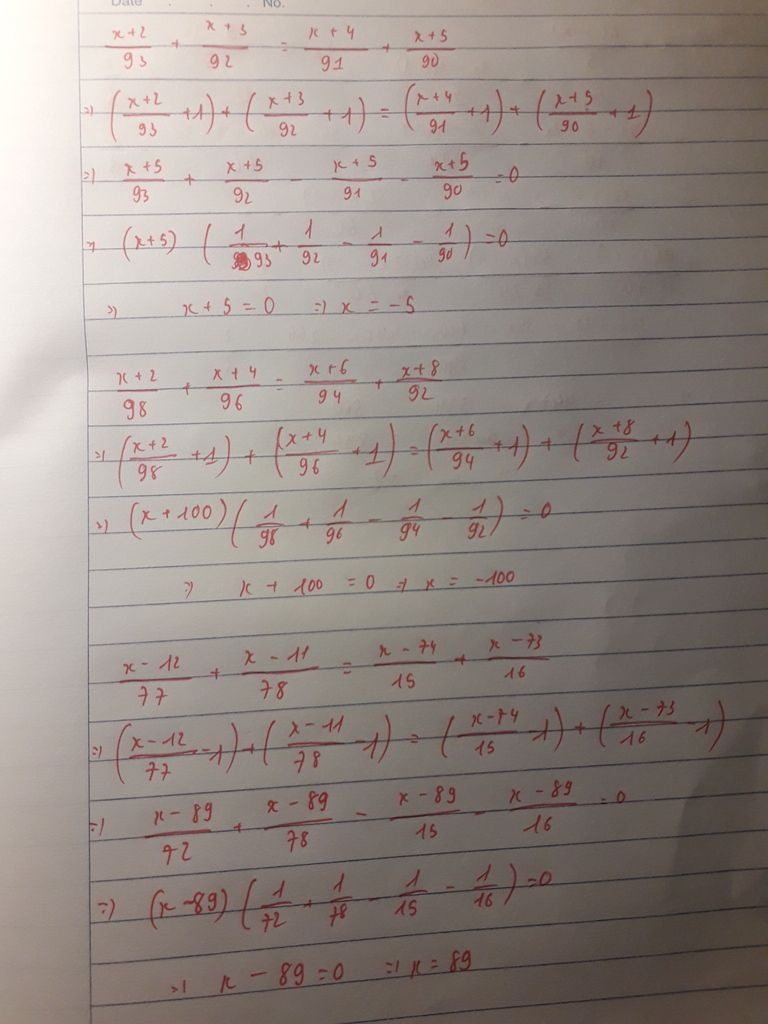 Date . . . No.
x+2/93 + x+3/92 = x+4/91 + x+5/90
=> (x+2/93 + 1) + (x+3/92 + 1) = (x+4/91 + 1) + (x+5/90 + 1)
=> x+5/93 + x+5/92 - x+5/91 - x+5/90 = 0
=> (x+5) (1/93 + 1/92 - 1/91 - 1/90) = 0
=> x+5 = 0 => x = -5
x+2/98 + x+4/96 = x+6/94 + x+8/92
=> (x+2/98 + 1) + (x+4/96 + 1) = (x+6/94 + 1) + (x+8/92 + 1)
=> (x+100) (1/98 + 1/96 - 1/94 - 1/92) = 0
=> x + 100 = 0 => x = -100
x-12/77 + x-11/78 = x-74/15 + x-73/16
=> (x-12/77 - 1) + (x-11/78 - 1) = (x-74/15 - 1) + (x-73/16 - 1)
=> x-89/72 + x-89/78 - x-89/15 - x-89/16 = 0
=> (x-89) (1/72 + 1/78 - 1/15 - 1/16) = 0
=> x - 89 = 0 => x = 89